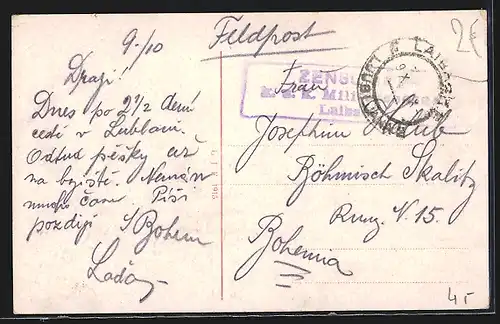 9./10
Feldpost
2£
Drazí!
Dnes po 2 1/2 denní
cestě v Lublani.
Odtud pěšky až
na bojiště. Nemám
mnoho času. Píši
později S Bohem
Laďa
ZENSU
K. u. K. Mili
Laiba
LAIBACH
LJUBLJANA
Frau
Josephine
Böhmisch Skalitz
Rung. N. 15.
Bohemia
G. J. K. 1915
4,-